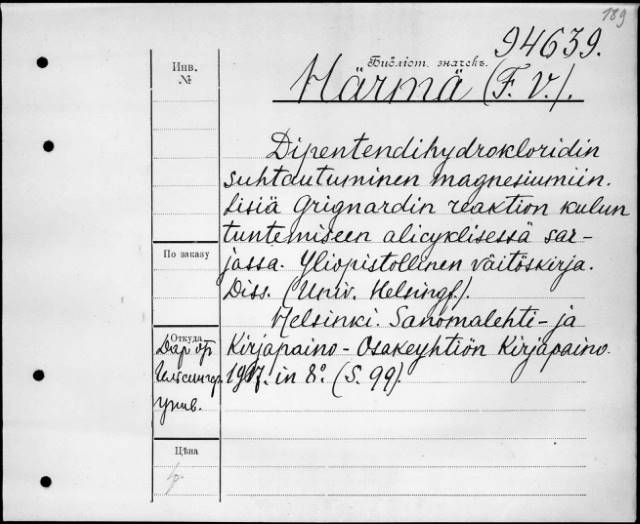 189
94639.
Инв.
№
Библіот. значекъ.
Härmä (F. V.).
Dipentendihydrokloridin
suhtautuminen magnesiumiin.
Lisiä Grignardin reaktion kulun
tuntemiseen alicyklisessä sar-
jassa. Yliopistollinen väitöskirja.
Diss. (Univ. Helsingf.).
Helsinki. Sanomalehti- ja
Kirjapaino-Osakeyhtiön Kirjapaino.
1917. in 8° (S. 99).
По заказу
Откуда
Дар от
Гельсингф.
унив.
Цѣна